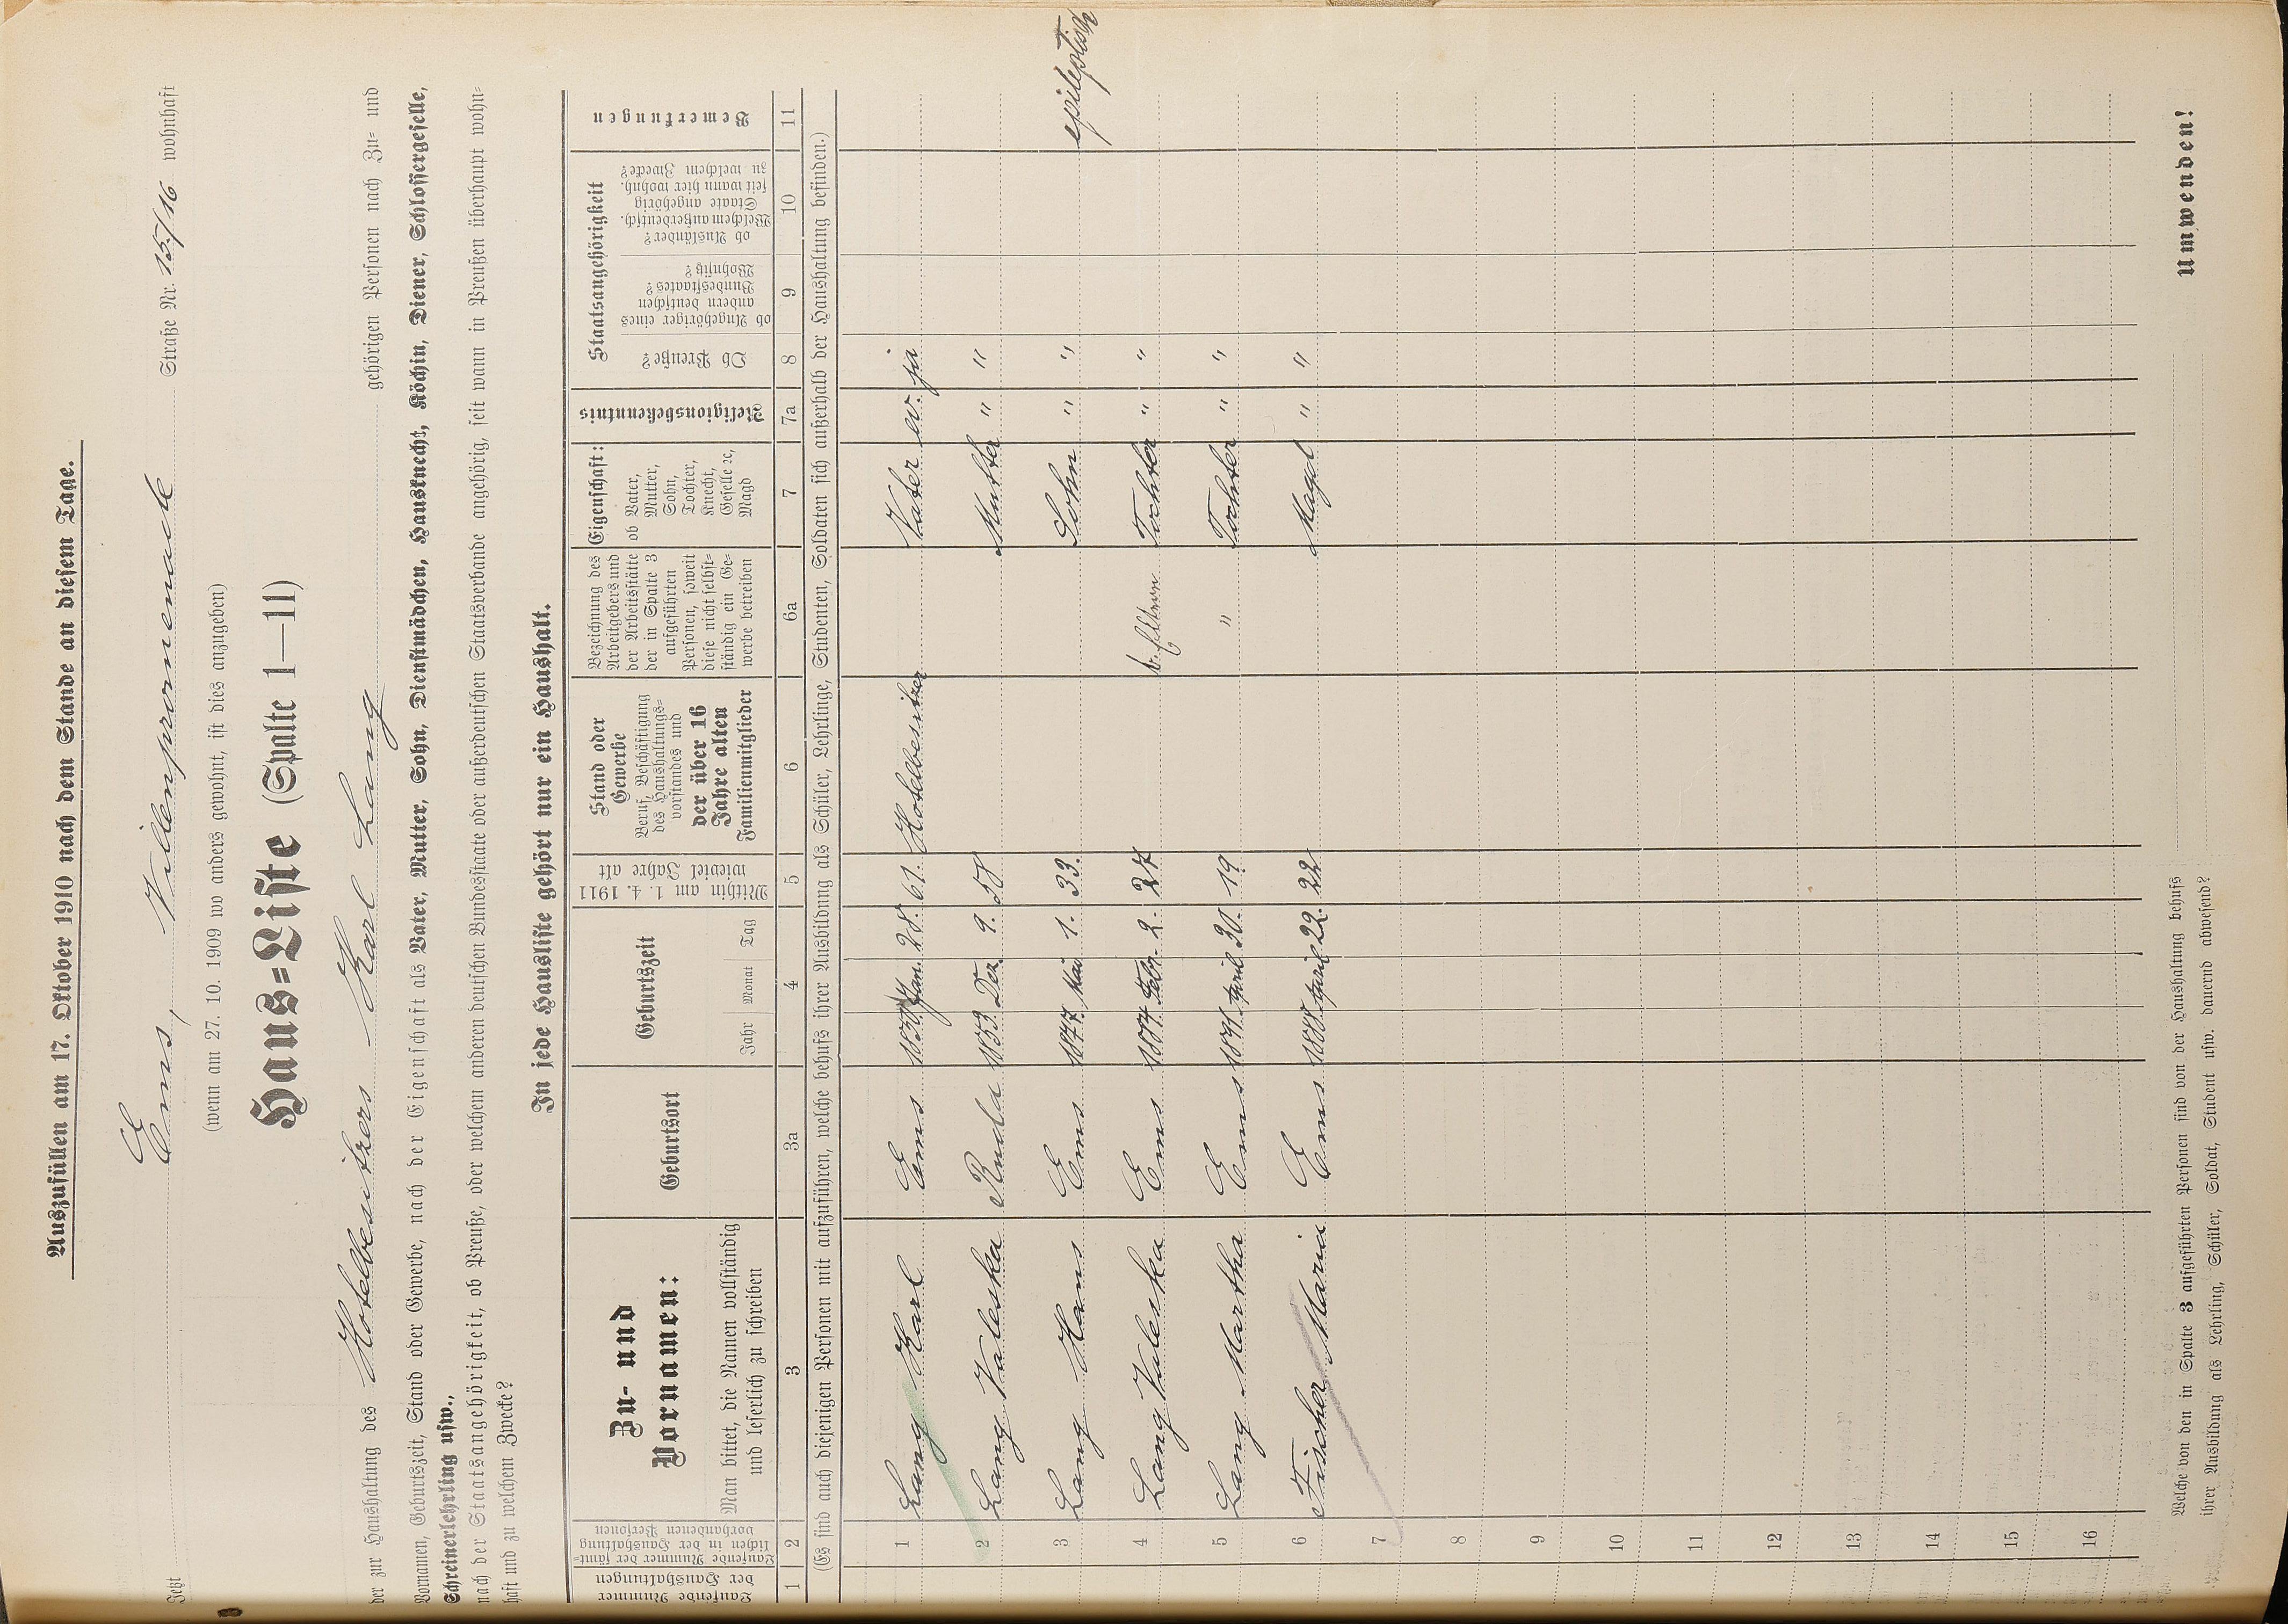 Auszufüllen am 17. Oktober 1910 nach dem Stande an diesem Tage.
Jetzt Ems, Villenpromenade Straße Nr. 15/16 wohnhaft
(wenn am 27. 10. 1909 wo anders gewohnt, ist dies anzugeben)
Haus=Liste (Spalte 1—11)
der zur Haushaltung des Hotelbesitzers Karl Lang gehörigen Personen nach Zu= und
Vornamen, Geburtszeit, Stand oder Gewerbe, nach der Eigenschaft als Vater, Mutter, Sohn, Dienstmädchen, Hausknecht, Köchin, Diener, Schlossergeselle,
Schreinerlehrling usw.,
nach der Staatsangehörigkeit, ob Preuße, oder welchem anderen deutschen Bundesstaate oder außerdeutschen Staatsverbande angehörig, seit wann in Preußen überhaupt wohn=
haft und zu welchem Zwecke?
In jede Hausliste gehört nur ein Haushalt.
Laufende Nummer der Haushaltungen
Laufende Nummer der sämt=lichen in der Haushaltung vorhandenen Personen
Zu- und Vornamen:
Man bittet, die Namen vollständig und leserlich zu schreiben
Geburtsort
Geburtszeit
Jahr Monat Tag
Mithin am 1. 4. 1911 wieviel Jahre alt
Stand oder Gewerbe
Beruf, Beschäftigung des Haushaltungs=vorstandes und der über 16 Jahre alten Familienmitglieder
Bezeichnung des Arbeitgebers und der Arbeitsstätte der in Spalte 3 aufgeführten Personen, soweit diese nicht selbst=ständig ein Ge=werbe betreiben
Eigenschaft:
ob Vater, Mutter, Sohn, Tochter, Knecht, Geselle ꝛc, Magd
Religionsbekenntnis
Staatsangehörigkeit
Ob Preuße?
ob Angehöriger eines andern deutschen Bundesstaates? Wohnsitz?
ob Ausländer? Welchem außerdeutsch. Staate angehörig seit wann hier wohnh. zu welchem Zwecke?
Bemerkungen
1 2 3 3a 4 5 6 6a 7 7a 8 9 10 11
(Es sind auch diejenigen Personen mit aufzuführen, welche behufs ihrer Ausbildung als Schüler, Lehrlinge, Studenten, Soldaten sich außerhalb der Haushaltung befinden.)
1 Lang Karl Ems Jan. 28. 61. Hotelbesitzer Vater ev. ja
2 Lang Valeska 1853 Dez. 9. 58 Mutter " "
3 Lang Hans Ems 1877 Mai 1. 33. Sohn " " epileptisch
4 Lang Valeska Ems 1884 Febr. 2. 27 b. Eltern Tochter " "
5 Lang Martha Ems 1891 April 30. 19. " Tochter " "
6 Fischer Maria Ems 1888 April 22. 22 Magd " "
7
8
9
10
11
12
13
14
15
16
Welche von den in Spalte 3 aufgeführten Personen sind von der Haushaltung behufs
ihrer Ausbildung als Lehrling, Schüler, Soldat, Student usw. dauernd abwesend?
Umwenden!